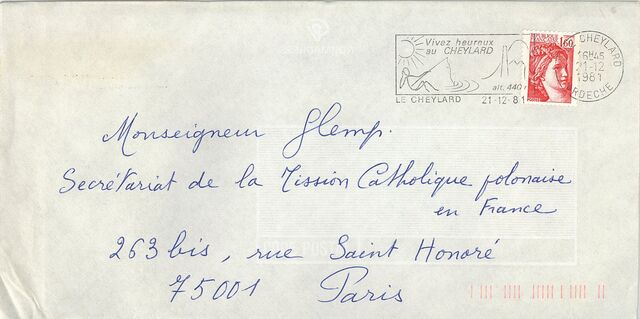 Vivez heureux
au CHEYLARD
alt. 440
LE CHEYLARD 21-12-81
1,60
CHEYLARD
16H45
21-12
1981
ARDECHE
Monseigneur Glemp.
Secrétariat de la Mission Catholique polonaise
en France
263 bis, rue Saint Honoré
75001 Paris